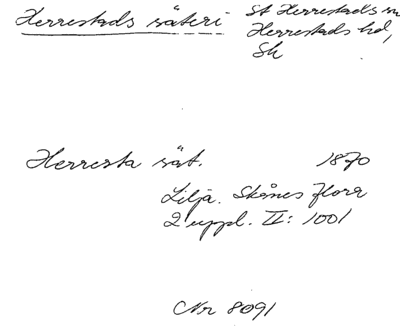 Herrestads säteri
St Herrestads sn
Herrestads hd,
Sk
Herresta sät. 1870
Lilja. Skånes flora
2 uppl. II: 1001
Nr 8091